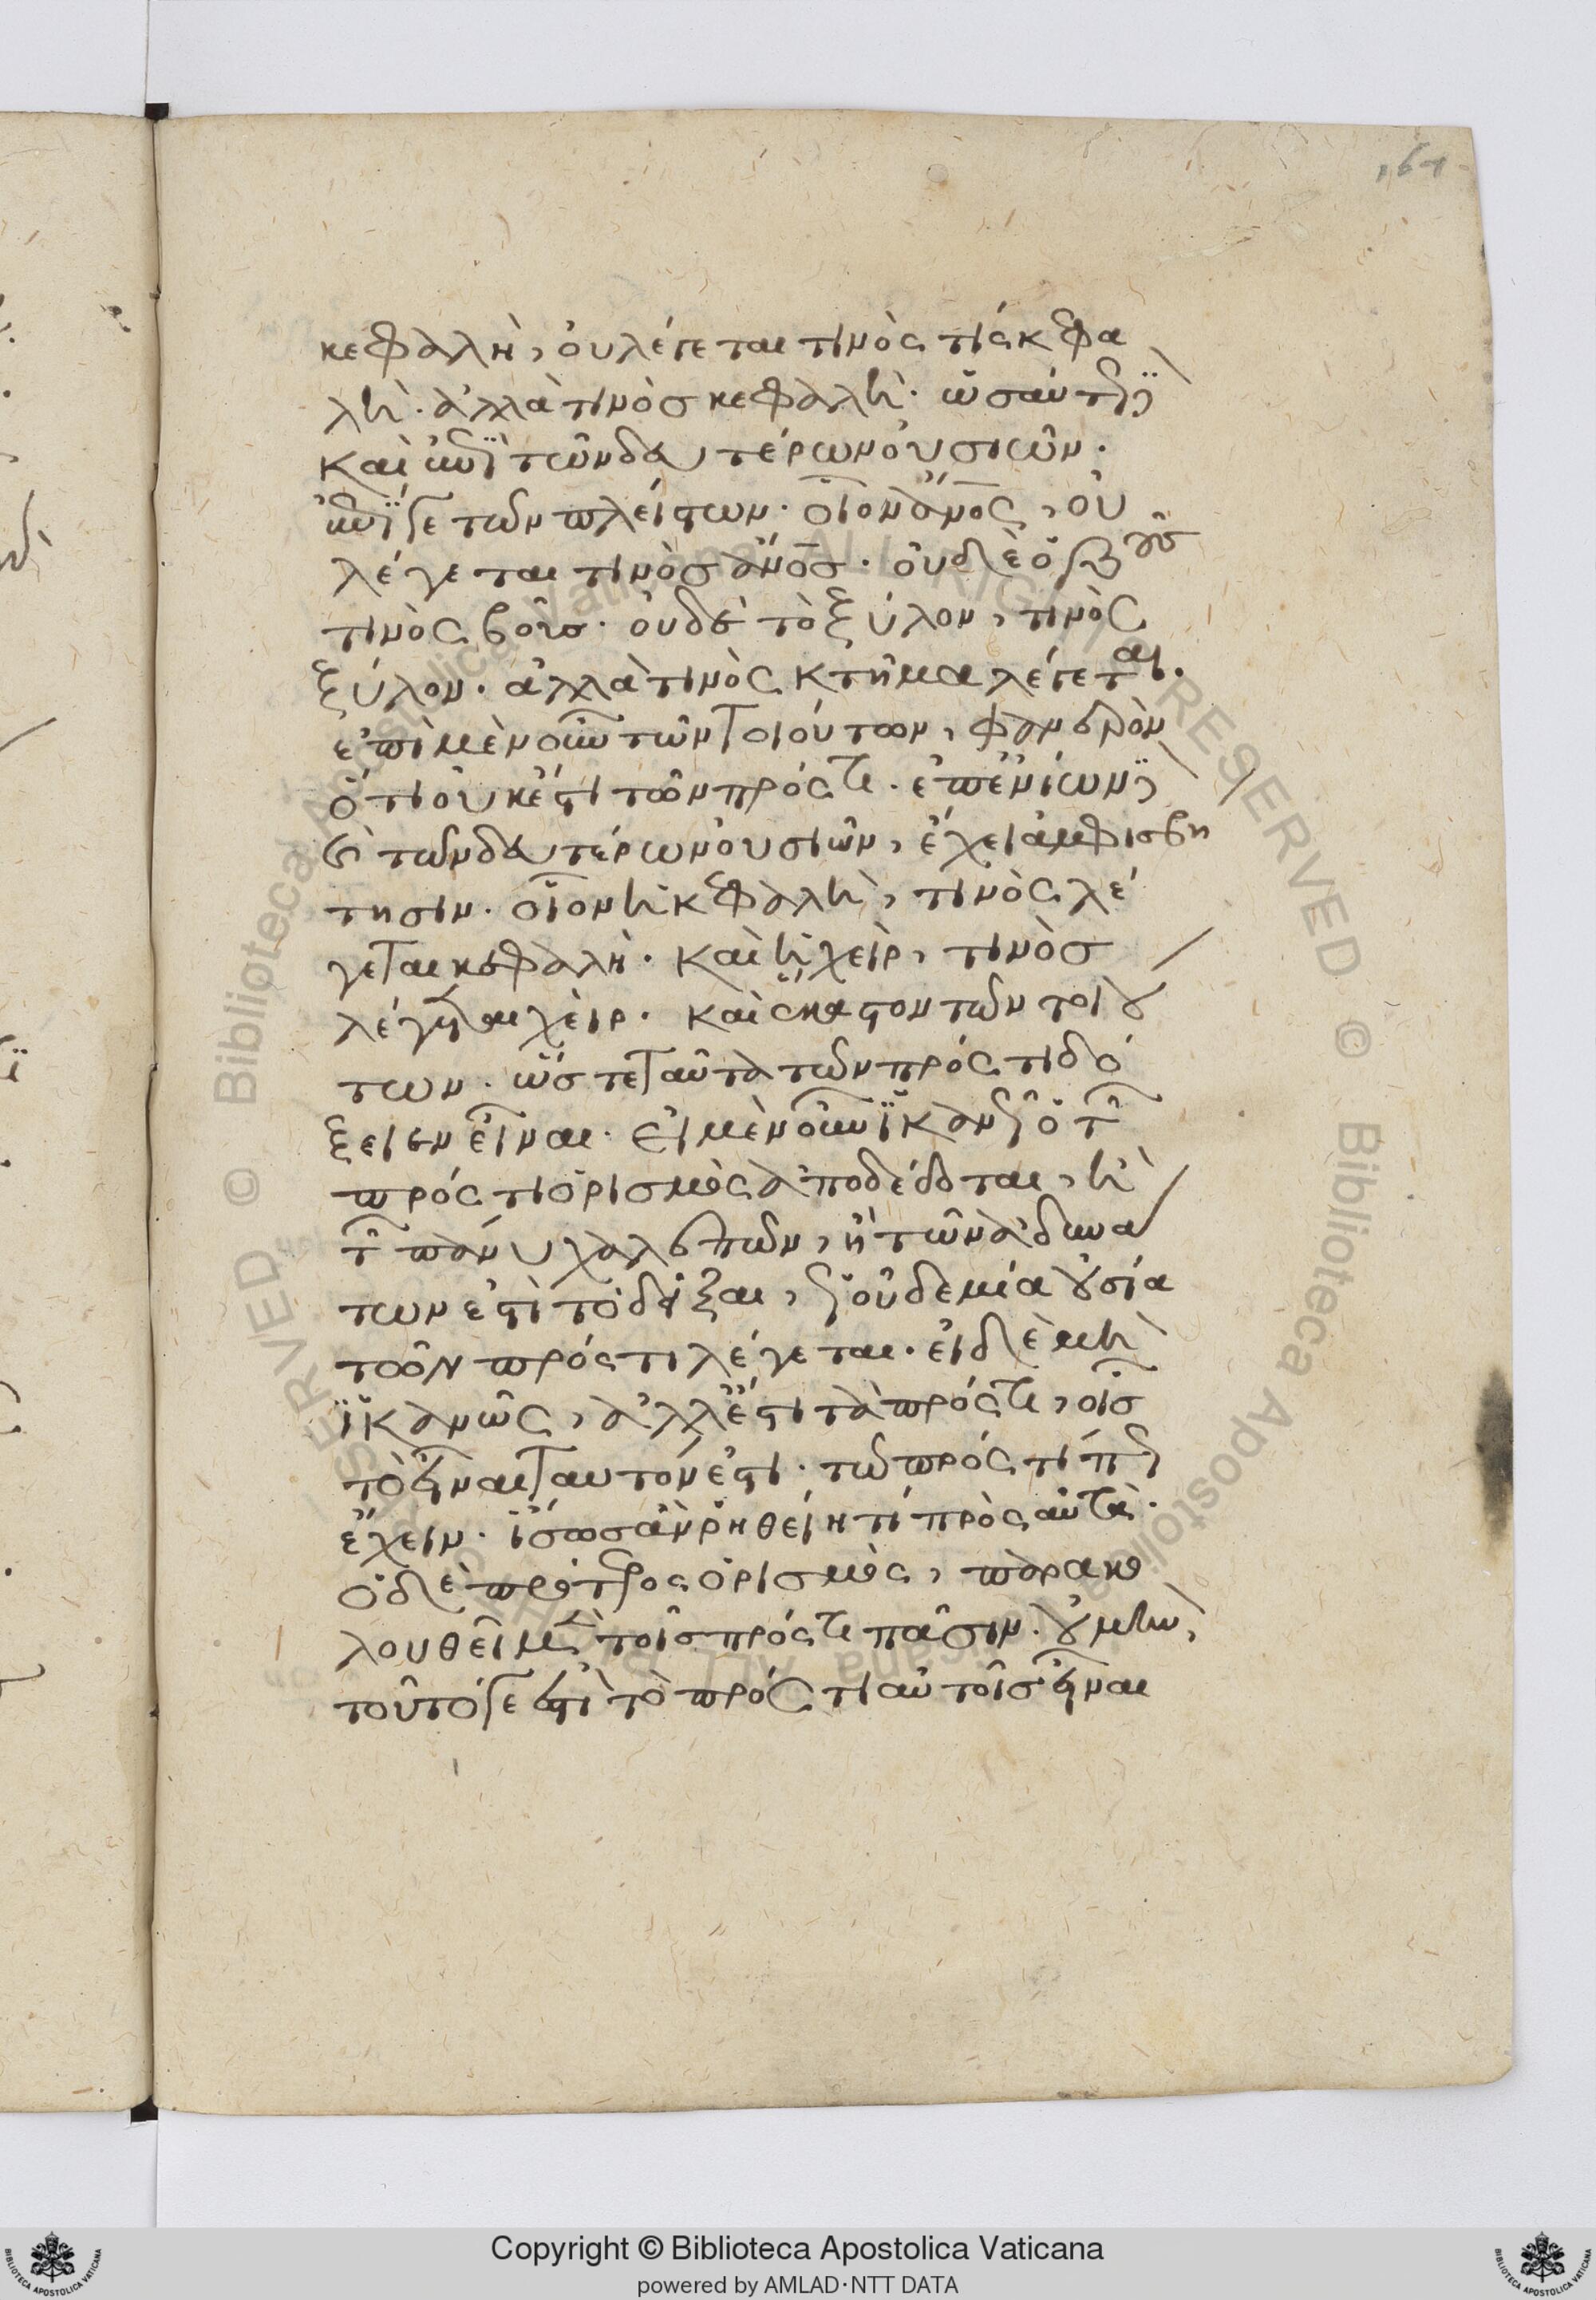 161
κεφαλὴ, οὐ λέγεται τινός τίς κεφα
λὴ. ἀλλὰ τινὸς κεφαλὴ. ὡσαύτως
καὶ ἐπὶ τῶν δευτέρων οὐσιῶν.
ἐπί γε τῶν πλείστων. οἷον ἄνος, οὐ
λέγεται τινὸς ἄνος. οὐδὲ ὁ βοῦς
τινὸς βοῦς. οὐδὲ τὸ ξύλον, τινὸς
ξύλον. ἀλλὰ τινὸς κτῆμα λέγεται.
ἐπὶ μὲν οὖν τῶν τοιούτων, φανερὸν
ὅτι οὐκ ἔστι τῶν πρός τι. ἐπ' ἐνίων δὲ
τῶν δευτέρων οὐσιῶν, ἔχει ἀμφισβη
τησιν. οἷον ἡ κεφαλὴ, τινὸς λέ
γεται κεφαλὴ. καὶ ἡ χεὶρ, τινὸς
λέγεται χεὶρ. καὶ ἕκαστον τῶν τοιού
των. ὥστε ταῦτα τῶν πρός τι δό
ξειεν εἶναι. εἰ μὲν οὖν ἱκανῶς ὁ τῶν
πρός τι ὁρισμὸς ἀποδέδοται, ἢ
τῶν πάνυ χαλεπῶν, ἢ τῶν ἀδυνα
των ἐστὶ τὸ δεῖξαι, ὡς οὐδεμία οὐσία
τῶν πρός τι λέγεται. εἰ δὲ μὴ
ἱκανῶς, ἀλλ' ἔστι τὰ πρός τι, οἷς
τὸ εἶναι ταυτόν ἐστι. τῶ πρός τί πως
ἔχειν. ἴσως ἂν ῥηθείη τί πρὸς αὐτὰ.
ὁ δὲ πρότερος ὁρισμὸς, παρακο
λουθεῖ μὲν τοῖς πρός τι πᾶσιν. οὐ μὴν,
τοῦτό γε ἐστὶ τὸ πρός τι αὐτοῖς εἶναι
Copyright © Biblioteca Apostolica Vaticana
powered by AMLAD·NTT DATA